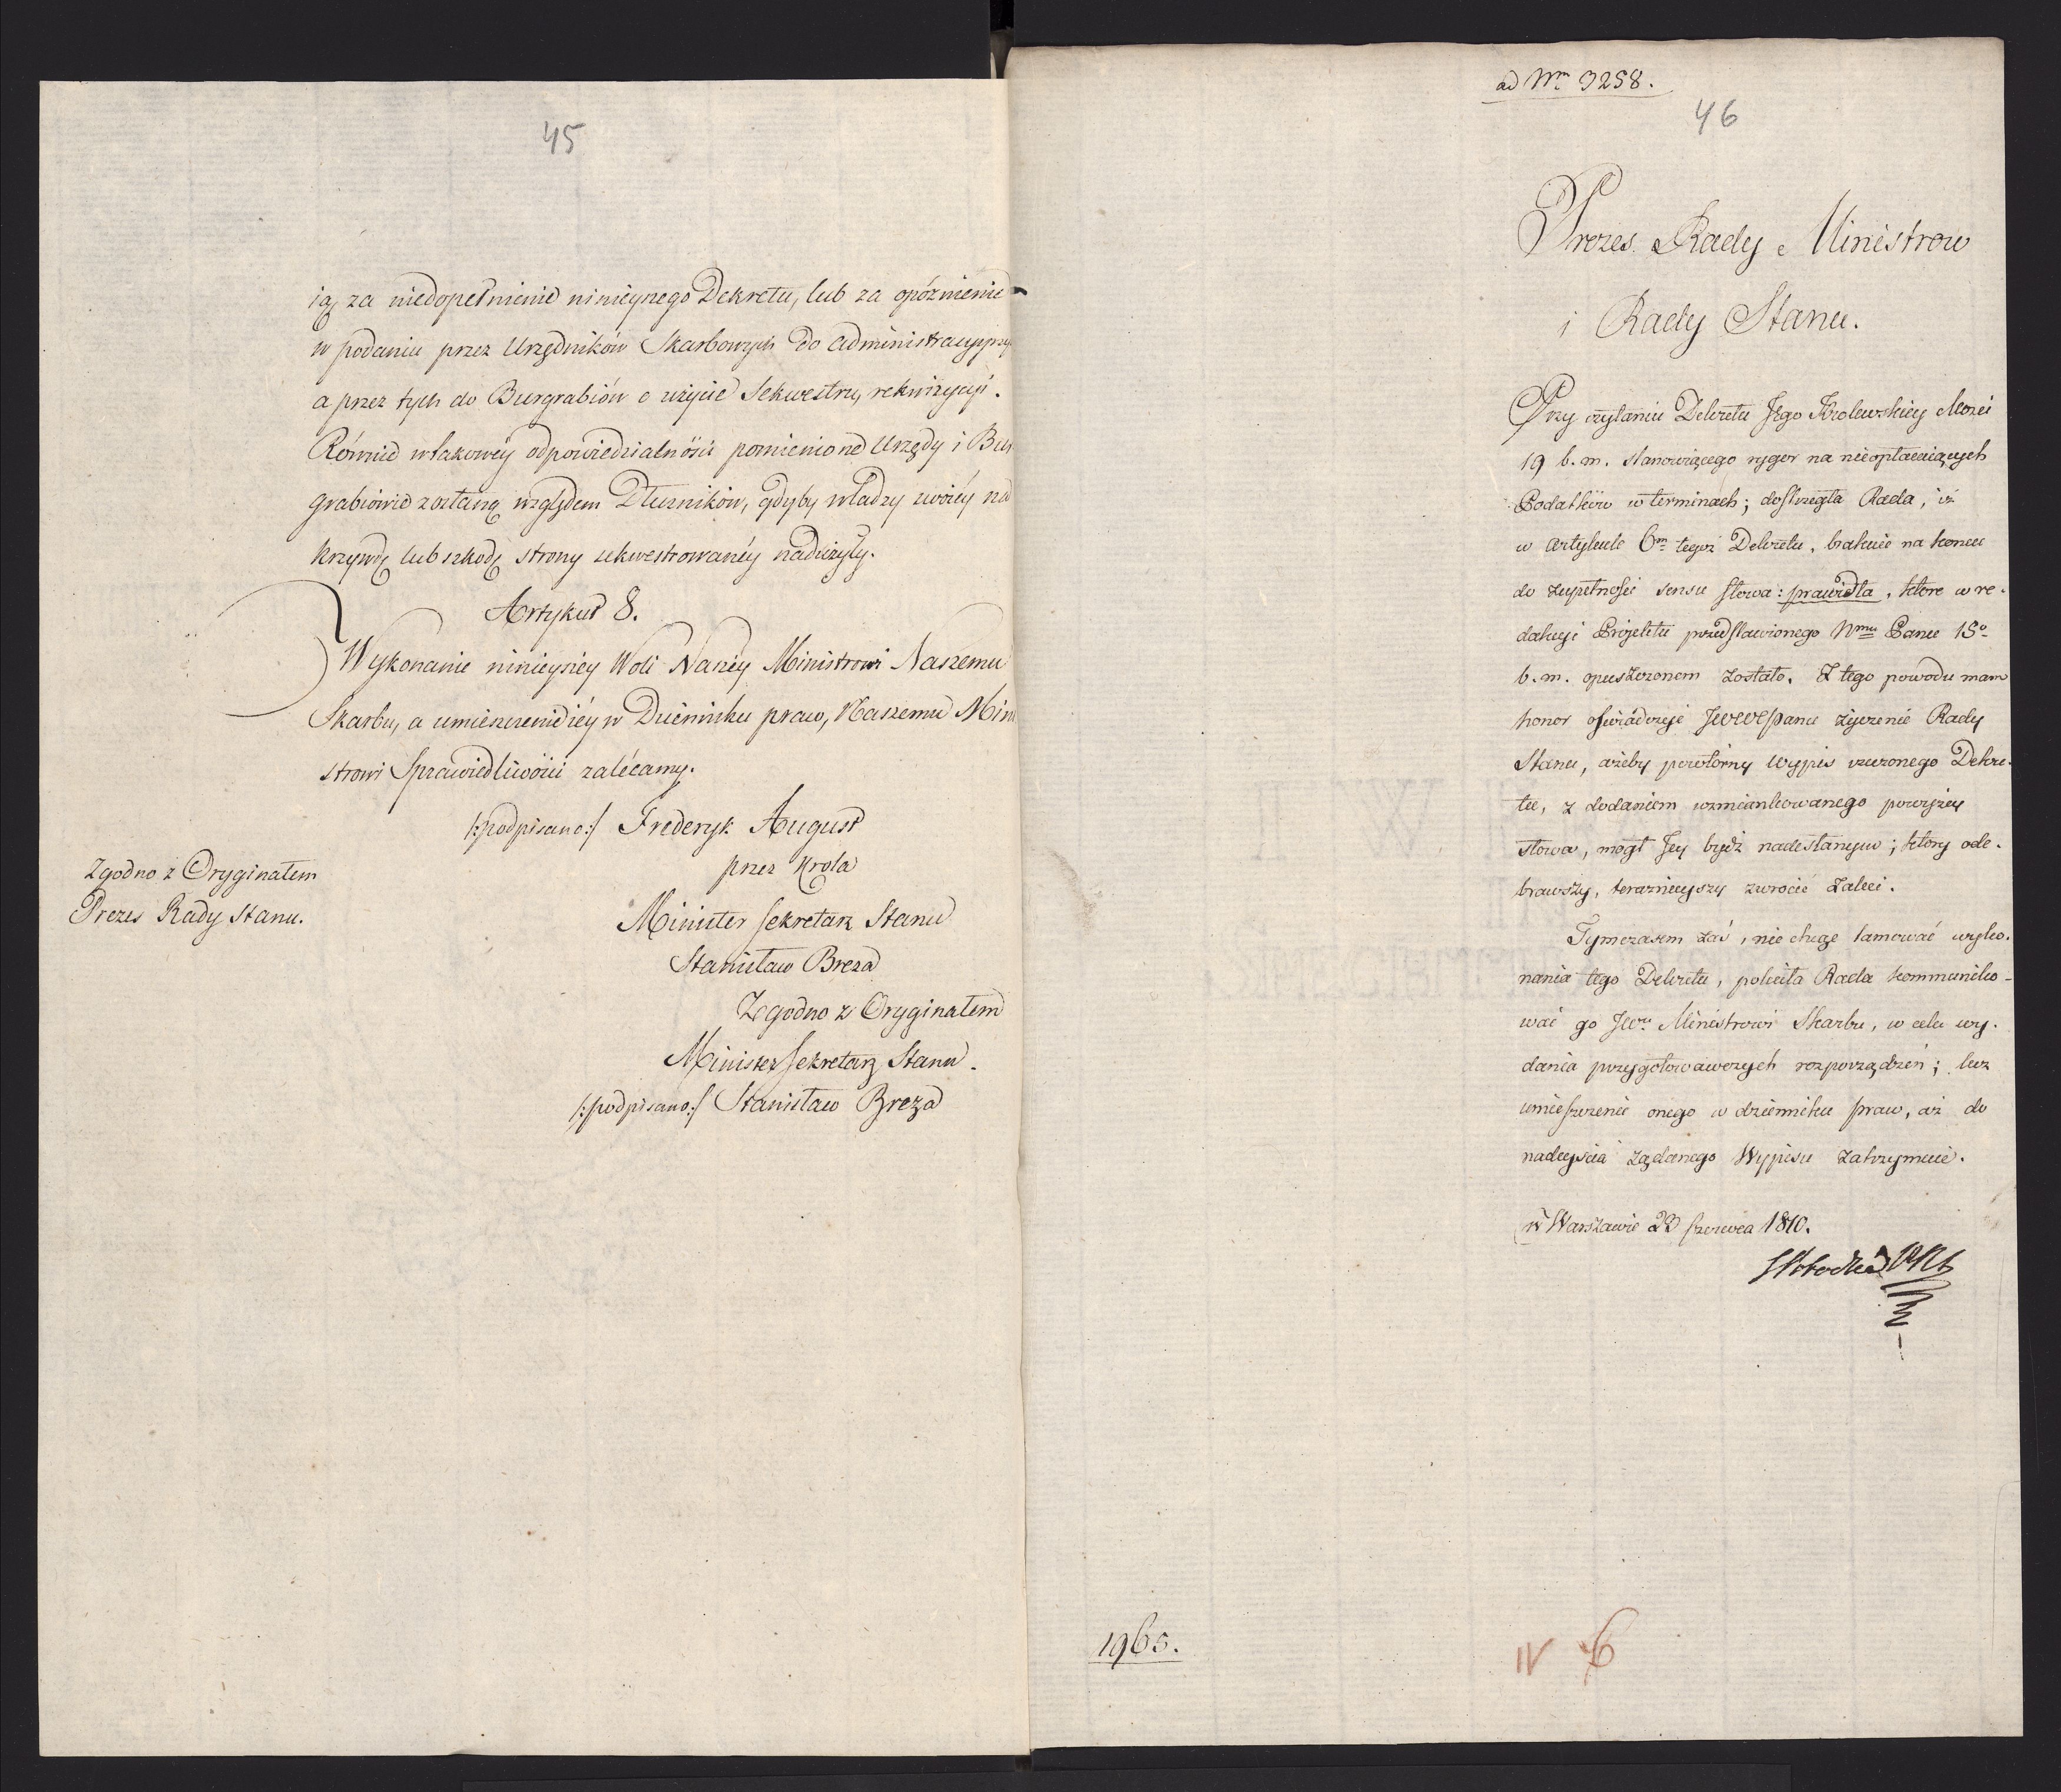 45
ią, za niedopełnienie ninieyszego Dekretu, lub za opóznienie
w podaniu przez Urzędników Skarbowych do administracyi
a przez tych do Burgrabiów o użycie Sekwestru, rekwizycyi.
Równie w takowéy odpowiedzialności pomienione Urzędy i Bur
grabiowie zostaną względem Dłużników, gdyby władzy swoiéy na
krzywdę lub szkodę strony sekwestrowanéy nadużyły.
Artykuł 8.
Wykonanie ninieyszey Woli Naszey Ministrowi Naszemu
Skarbu, a umieszczenie iéy w Dzienniku praw, Naszemu Mini
strowi Sprawiedliwości zalécamy.
/:podpisano:/ Frederyk August
przez Krola
Minister Sekretarz Stanu
Stanisław Breza
Zgodno z Oryginałem
Minister Sekretarz Stanu.
/:podpisano:/ Stanisław Breza
Zgodno z Oryginałem
Prezes Rady Stanu.
ad Nrm 3258.
46
Prezes Rady Ministrow
i Rady Stanu.
Przy czytaniu Dekretu Jego Krolewskiey Mości
19 b. m. stanowiącego rygor na nieopłacaiących
Podatków w terminach; dostrzegła Rada, iż
w Artykule 6m tegoż Dekretu, brakuie na koncu
do zupełności sensu słowa: prawidła, ktore w re-
dakcyi Proiektu przedstawionego Nmu Panu 15o
b. m. opuszczonem zostało. Z tego powodu mam
honor oświadczyć JWWPanu życzenie Rady
Stanu, ażeby powtórny wypis rzeczonego Dekre-
tu, z dodaniem wzmiankowanego powyżey
słowa, mogł Jey bydź nadesłanym; ktory ode-
brawszy, teraznieyszy zwrocić zaleci.
Tymczasem zaś, nie chcąc tamować wyko-
nania tego Dekretu, poleciła Rada kommuniko-
wać go JWu Ministrowi Skarbu, w celu wy-
dania przygotowawczych rozporządzeń; lecz
umieszczenie onego w dzienniku praw, aż do
nadeyścia żądanego Wypisu zatrzymuie.
w Warszawie 23 Czerwca 1810.
1965.
IV 6